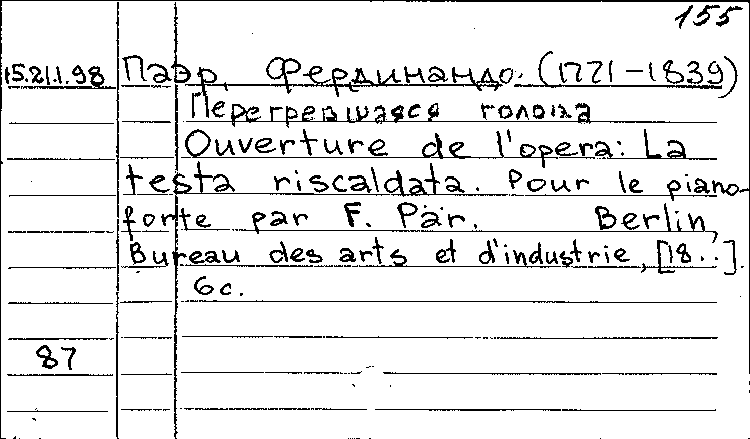 155
15.21.1.98 Паэр, Фердинандо. (1771-1839)
Перегревшаяся голова
Ouverture de l'opera: La
testa riscaldata. Pour le piano-
forte par F. Pär. Berlin,
Bureau des arts et d'industrie, [18..].
6с.
87